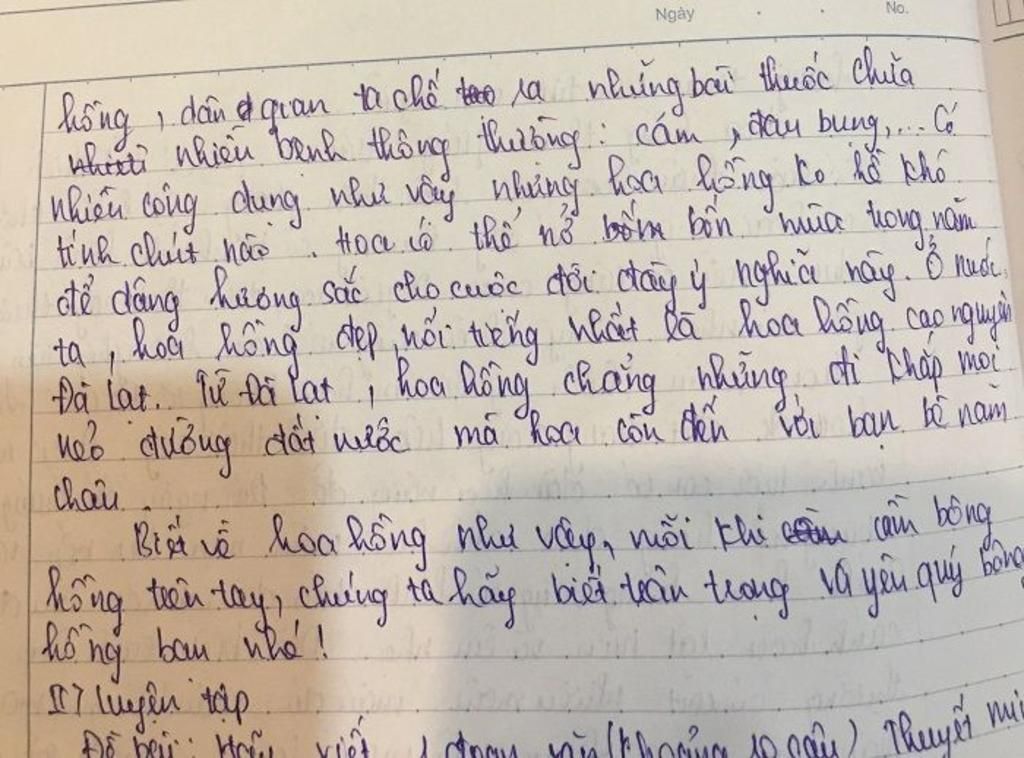 Ngày . . No.
hồng, dân gian ta chế ra những bài thuốc chữa
nhiều bệnh thông thường: cảm, đau bụng,... Có
nhiều công dụng như vậy nhưng hoa hồng ko hề khó
tính chút nào. Hoa có thể nở bốn mùa trong năm
để dâng hương sắc cho cuộc đời đầy ý nghĩa này. Ở nước
ta, hoa hồng đẹp nổi tiếng nhất là hoa hồng cao nguyên
Đà Lạt. Từ Đà Lạt, hoa hồng chẳng những đi khắp mọi
nẻo đường đất nước mà hoa còn đến với bạn bè năm
châu.
Biết về hoa hồng như vậy, mỗi khi cầm bông
hồng trên tay, chúng ta hãy biết trân trọng và yêu quý bông
hồng bạn nhé!
II7 luyện tập
Đề bài: Hãy viết 1 đoạn văn (khoảng 10 câu) Thuyết mi